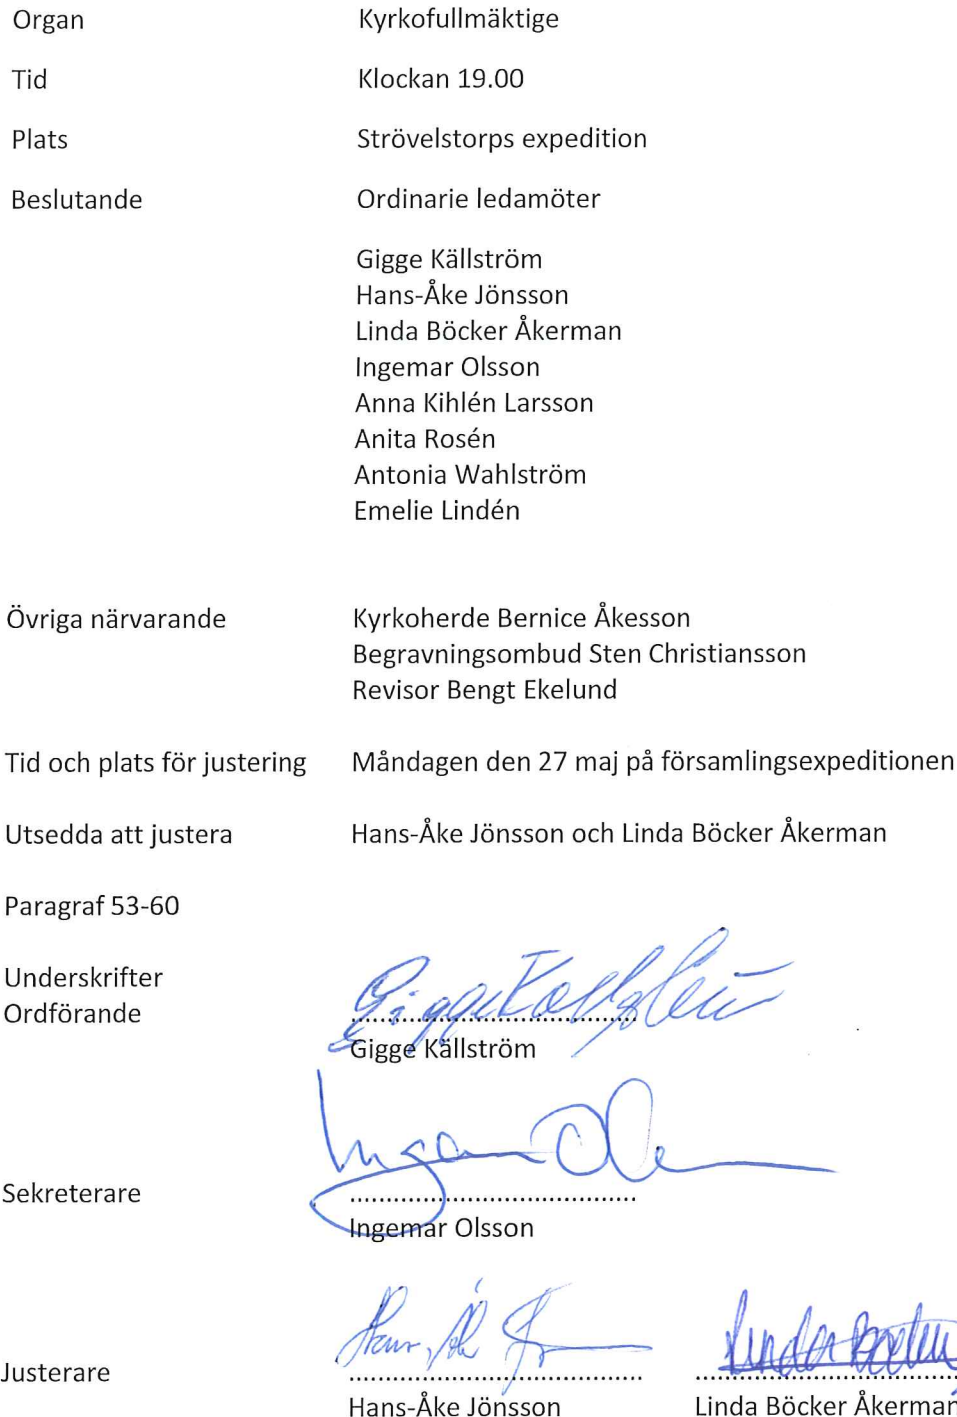 Organ Kyrkofullmäktige
Tid Klockan 19.00
Plats Strövelstorps expedition
Beslutande Ordinarie ledamöter
Gigge Källström
Hans-Åke Jönsson
Linda Böcker Åkerman
Ingemar Olsson
Anna Kihlén Larsson
Anita Rosén
Antonia Wahlström
Emelie Lindén
Övriga närvarande Kyrkoherde Bernice Åkesson
Begravningsombud Sten Christiansson
Revisor Bengt Ekelund
Tid och plats för justering Måndagen den 27 maj på församlingsexpeditionen
Utsedda att justera Hans-Åke Jönsson och Linda Böcker Åkerman
Paragraf 53-60
Underskrifter
Ordförande Gigge Källström
Gigge Källström
Sekreterare
Ingemar Olsson
Justerare
Hans-Åke Jönsson Linda Böcker Åkerman